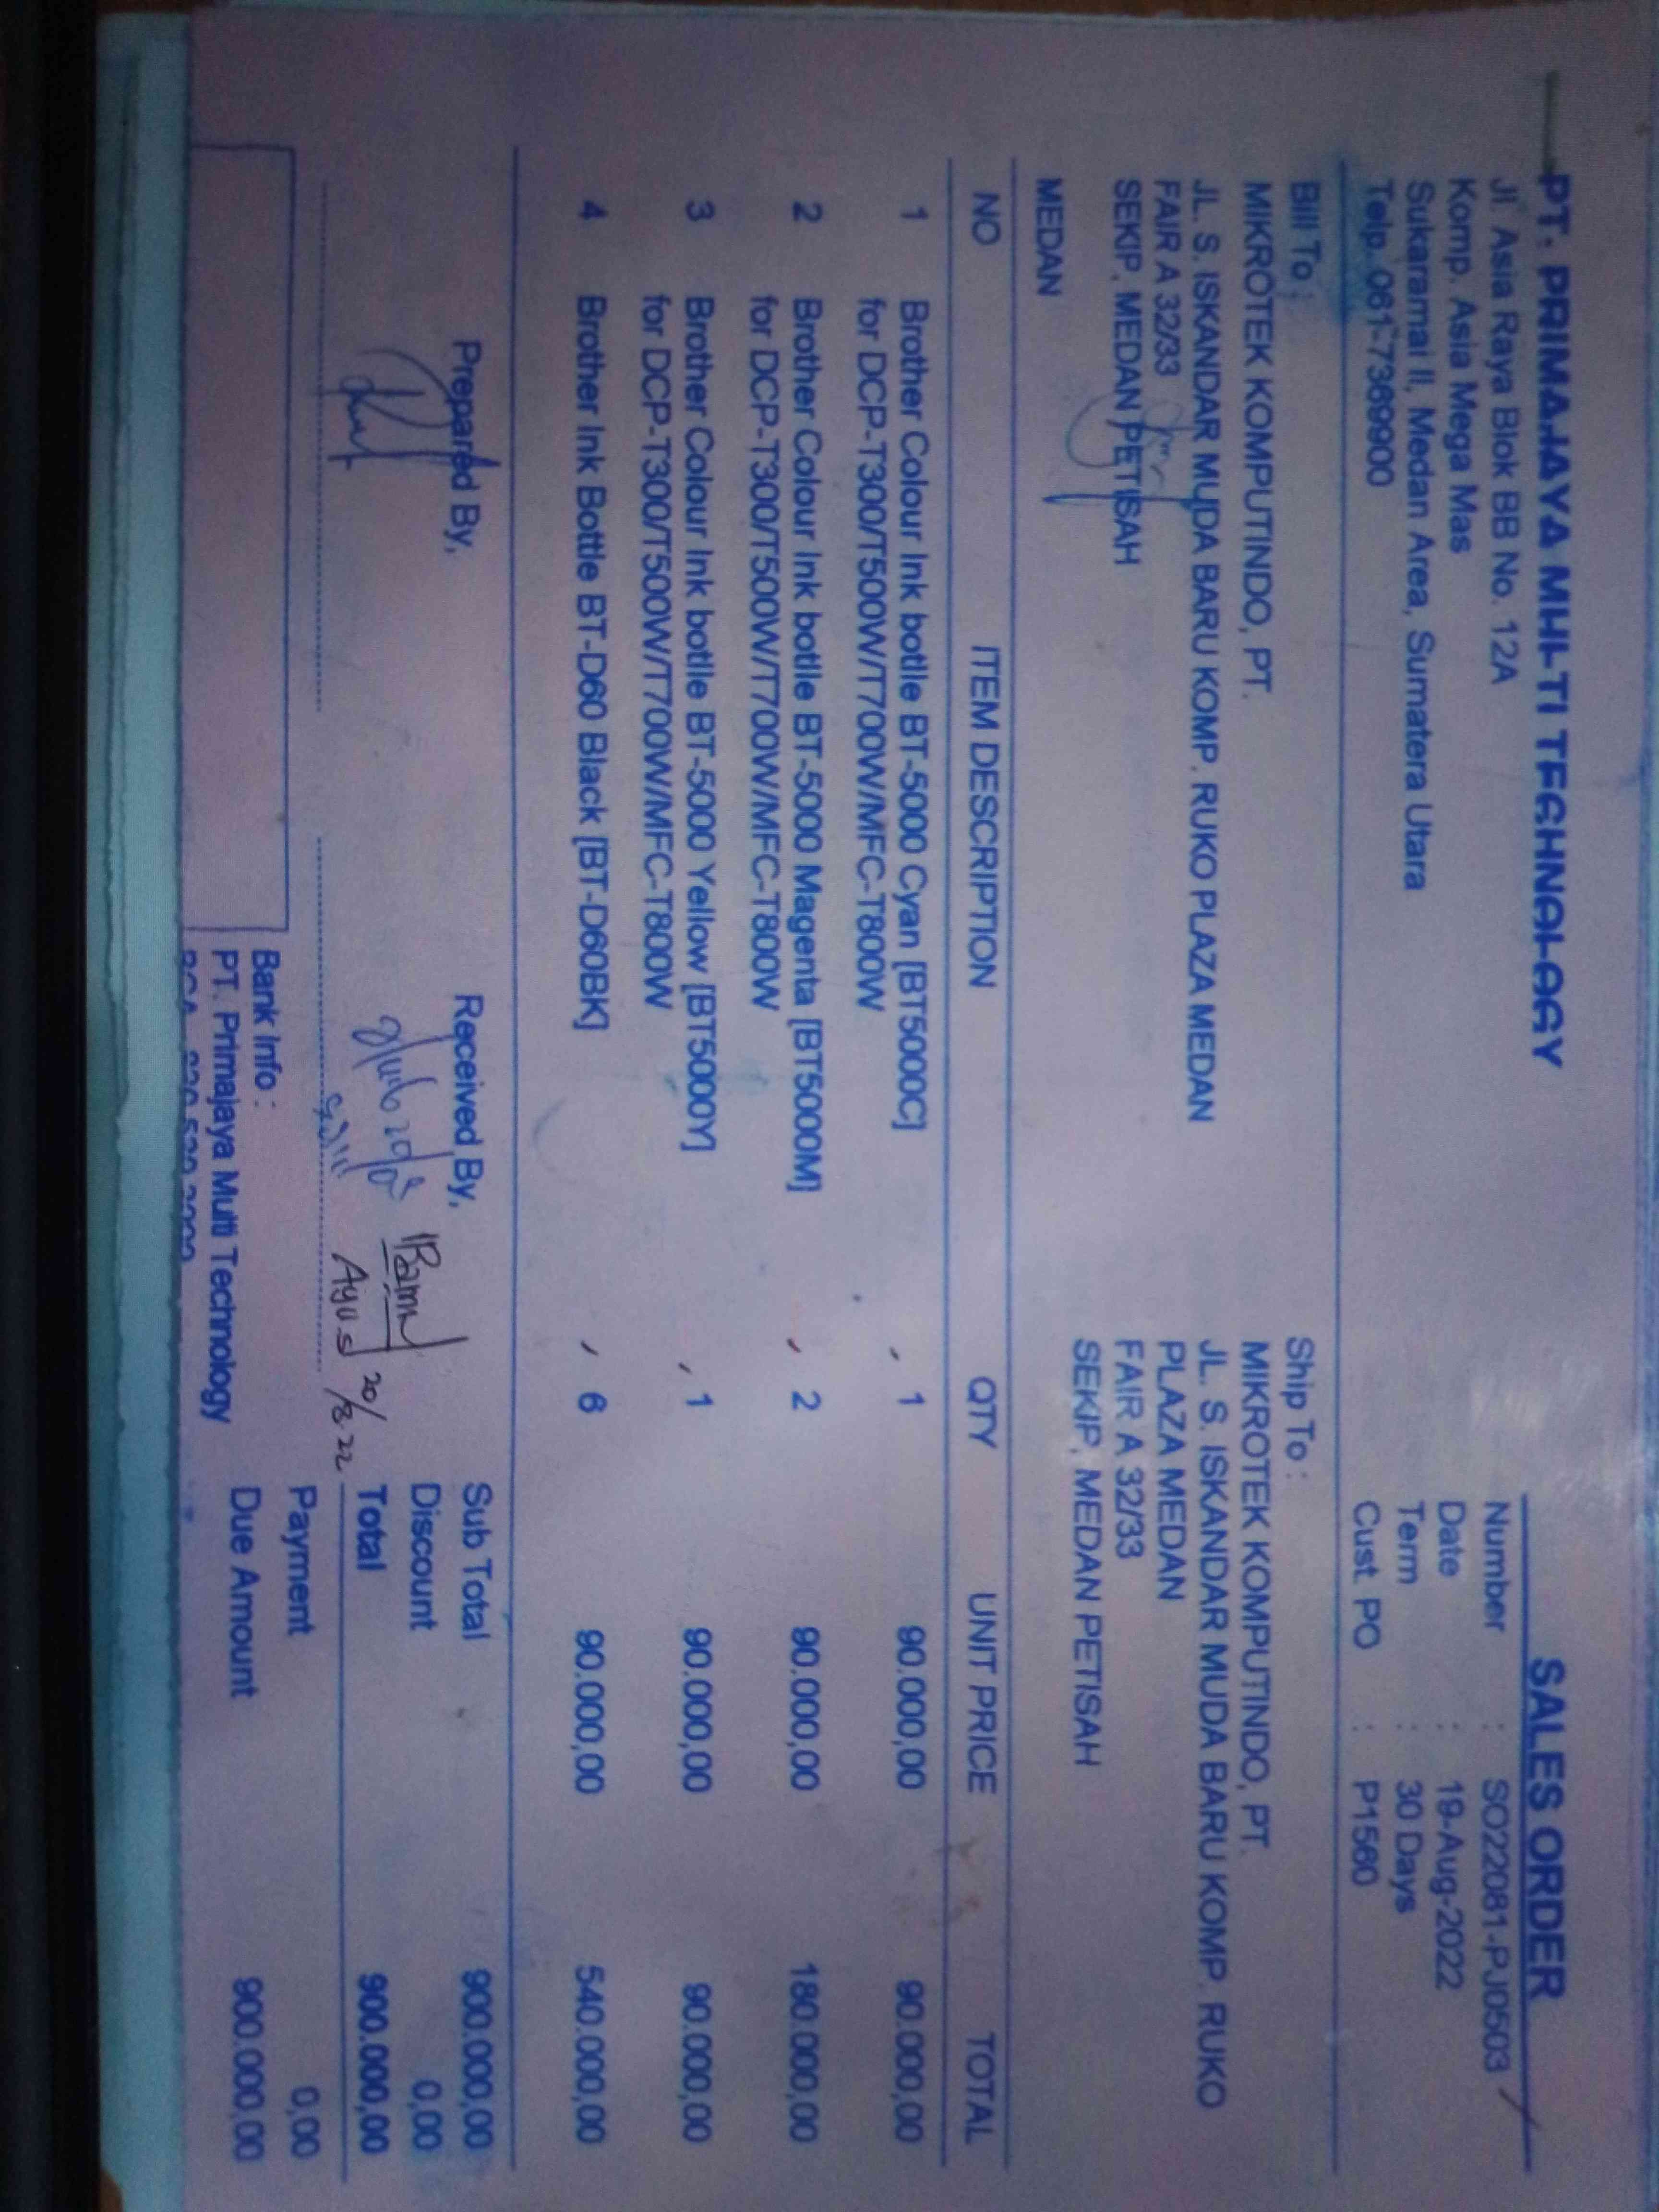 PT. PRIMAJAYA MULTI TECHNOLOGY
SALES ORDER
Jl. Asia Raya Blok BB No. 12A
Komp. Asia Mega Mas
Sukaramai II, Medan Area, Sumatera Utara
Telp. 061-7369900
Number : SO222081-PJ0503
Date : 19-Aug-2022
Term : 30 Days
Cust. PO : P1560
Bill To :
MIKROTEK KOMPUTINDO, PT.
JL. S. ISKANDAR MUDA BARU KOMP. RUKO PLAZA MEDAN
FAIR A 32/33
SEKIP, MEDAN PETISAH
MEDAN
Ship To :
MIKROTEK KOMPUTINDO, PT.
JL. S. ISKANDAR MUDA BARU KOMP. RUKO
PLAZA MEDAN
FAIR A 32/33
SEKIP, MEDAN PETISAH
NO ITEM DESCRIPTION QTY UNIT PRICE TOTAL
1 Brother Colour Ink botlle BT-5000 Cyan [BT5000C] 1 90.000,00 90.000,00
for DCP-T300/T500W/T700W/MFC-T800W
2 Brother Colour Ink botlle BT-5000 Magenta [BT5000M] 2 90.000,00 180.000,00
for DCP-T300/T500W/T700W/MFC-T800W
3 Brother Colour Ink botlle BT-5000 Yellow [BT5000Y] 1 90.000,00 90.000,00
for DCP-T300/T500W/T700W/MFC-T800W
4 Brother Ink Bottle BT-D60 Black [BT-D60BK] 6 90.000,00 540.000,00
Prepared By,
Received By,
Agus
20/8 22
Sub Total 900.000,00
Discount 0,00
Total 900.000,00
Payment 0,00
Due Amount 900.000,00
Bank Info :
PT. Primajaya Multi Technology